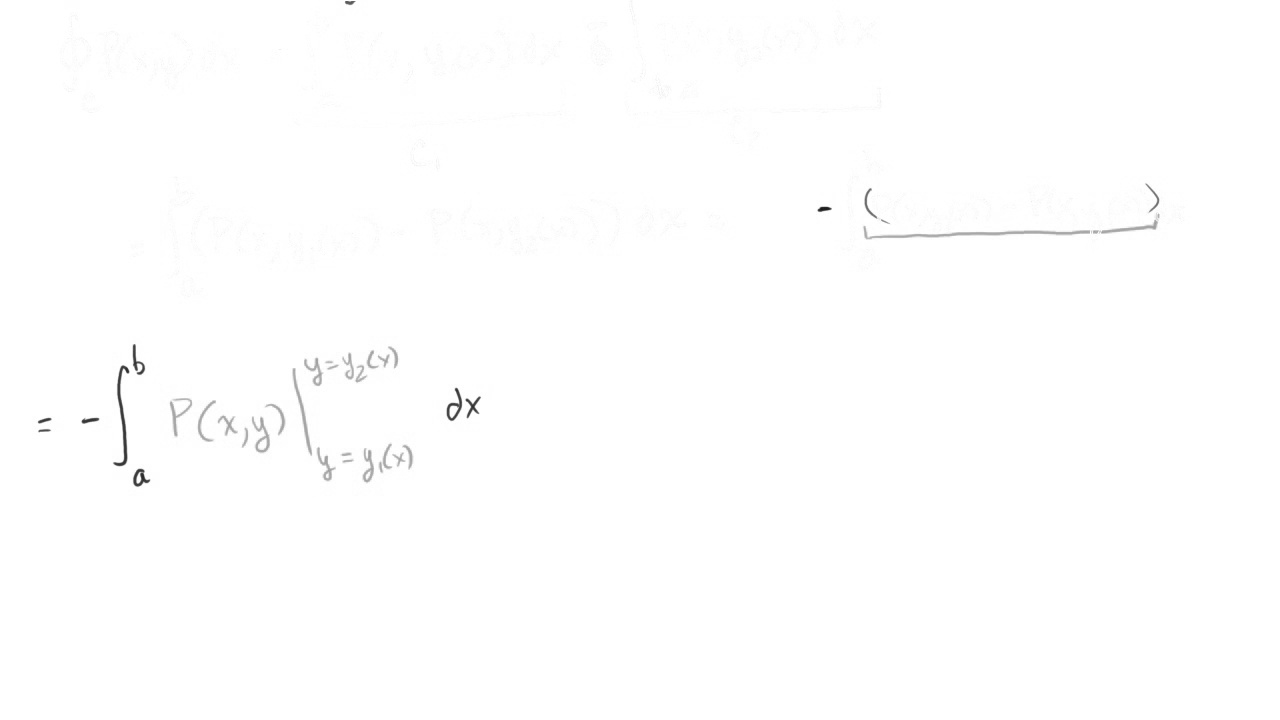 ∮_c P(x,y) dx = ∫ P(x, y₁(x)) dx - ∫ P(x, y₂(x)) dx
C₁ C₂
= ∫_a^b (P(x, y₁(x)) - P(x, y₂(x))) dx = - ∫_a^b (P(x, y₂(x)) - P(x, y₁(x))) dx
= - ∫_a^b P(x,y) |_{y = y₁(x)}^{y = y₂(x)} dx